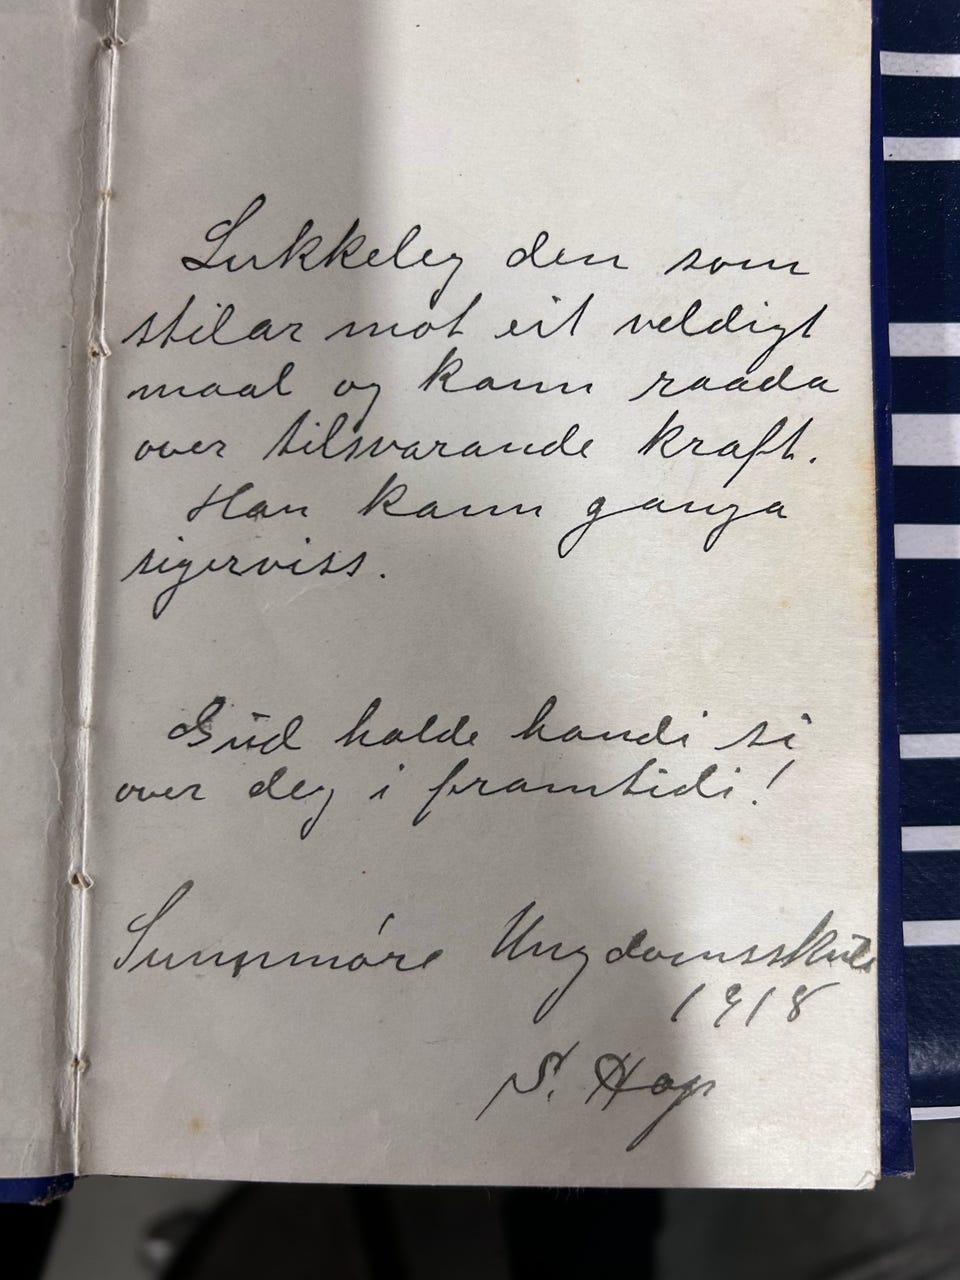 Lukkeleg den som
stilar mot eit veldigt
maal og kann raada
over tilsvarande kraft.
Han kann ganga
sigerviss.
Gud halde handi si
over deg i framtidi!
Sunnmøre Ungdomsskule
1918
S. Hop